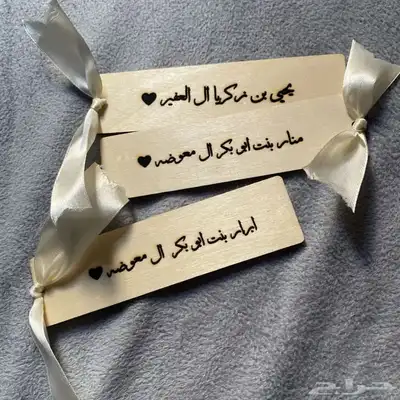 يحيى بن زكريا ال الصفير ♥
منار بنت ابي بكر ال معوضه ♥
ابرار بنت ابي بكر ال معوضه ♥
حراج